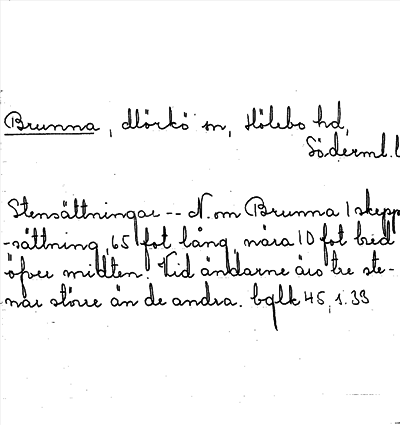 Brunna, Mörkö sn, Hölebo hd,
Söderml. l
Stensättningar -- N. om Brunna 1 skepp
-sättning, 65 fot lång, nära 10 fot bred
öfver midten. Vid ändarne äro tre ste-
nar större än de andra. bqlk 45, 1.33